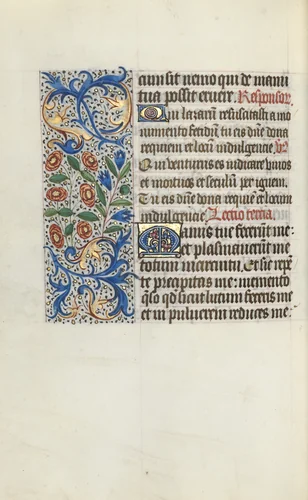 cum sit nemo qui de manu
tua possit eruere. Responsor.
Qui lazarum resuscitasti a mo
numento fetidum tu eis dne dona
requiem et locum indulgencie. V.
Qui venturus es iudicare vivos
et mortuos et seculum per ignem.
Tu eis dne dona requie et locum
indulgencie. Lectio tercia.
Manus tue fecerunt me:
et plasmaverunt me
totum in circuitu. Et sic repen
te precipitas me: memento
qso qd sicut lutum feceris me
et in pulverem reduces me: